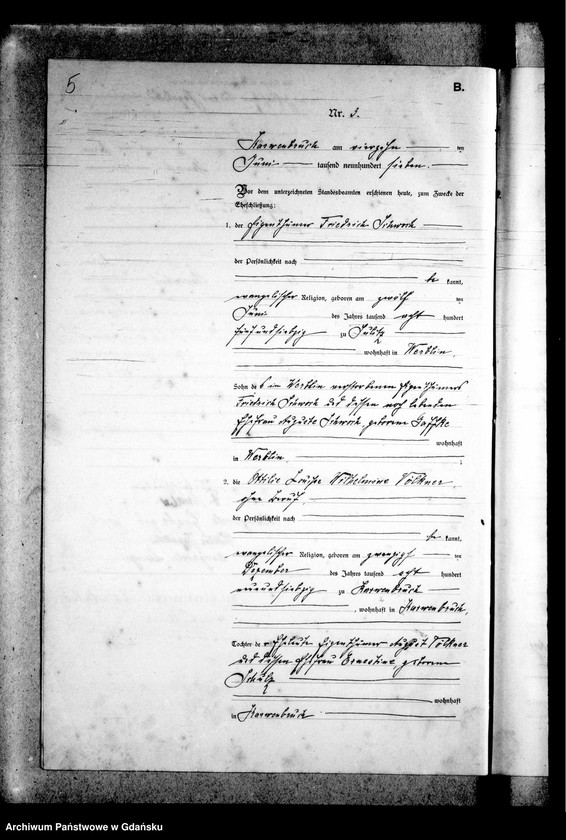 5
B.
Nr. 5.
Karwenbruch am vierzehn ten
Juni tausend neunhundert sieben.
Vor dem unterzeichneten Standesbeamten erschienen heute, zum Zwecke der
Eheschließung:
1. der Eigenthümer Friedrich
der Persönlichkeit nach
be kannt,
evangelischer Religion, geboren am zwölf ten
Juni des Jahres tausend acht hundert
fünfundsiebzig zu
wohnhaft in Werblin
Sohn des in Werblin verstorbenen Eigenthümers
Friedrich und dessen noch lebenden
Ehefrau Auguste geborene
wohnhaft
in Werblin
2. die Ottilie Louise Wilhelmine Völkner,
ohne Beruf,
der Persönlichkeit nach
be kannt,
evangelischer Religion, geboren am zwanzigs ten
Dezember des Jahres tausend acht hundert
neunundsiebzig zu Karwenbruch
, wohnhaft in Karwenbruch,
Tochter der Eheleute Eigenthümer August Völkner
und dessen Ehefrau Ernestine, geborene
Schulz
wohnhaft
in Karwenbruch
Archiwum Państwowe w Gdańsku